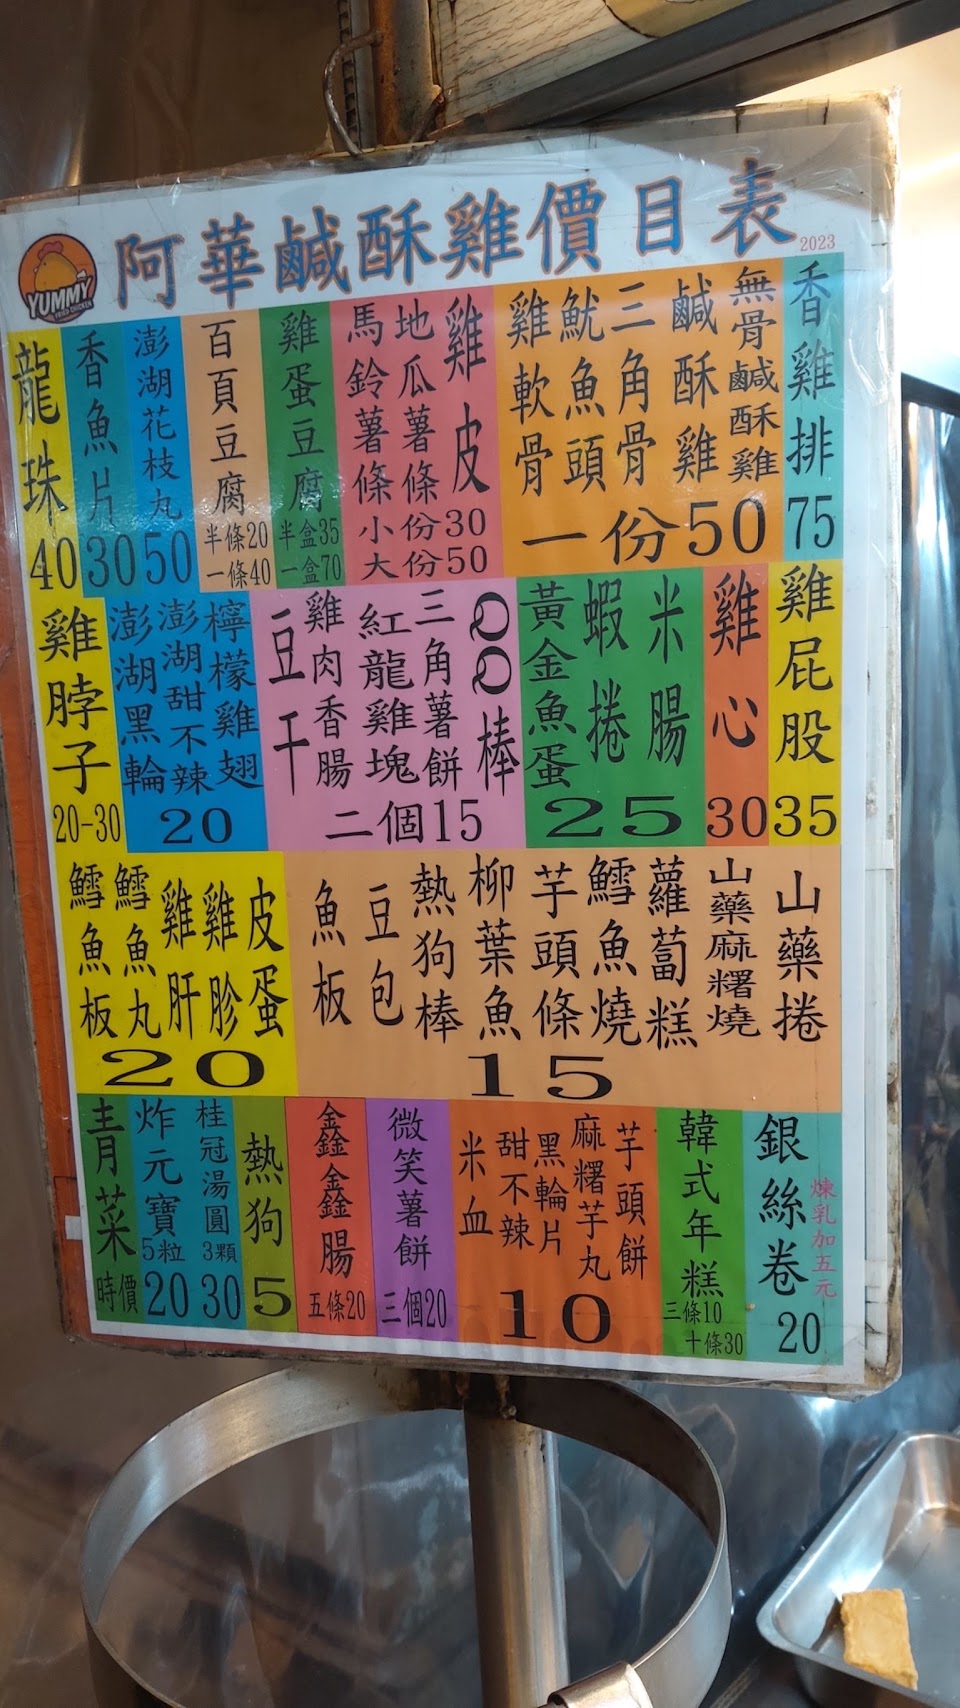 阿華鹹酥雞價目表
2023
YUMMY
FRIED CHICKEN
香雞排
75
無骨鹹酥雞
鹹酥雞
三角骨
魷魚頭
雞軟骨
一份50
雞皮
地瓜薯條
馬鈴薯條
小份30
大份50
雞蛋豆腐
半盒35
一盒70
百頁豆腐
半條20
一條40
澎湖花枝丸
50
香魚片
30
龍珠
40
雞屁股
35
雞心
30
米腸
蝦捲
黃金魚蛋
25
QQ棒
三角薯餅
紅龍雞塊
雞肉香腸
豆干
二個15
檸檬雞翅
澎湖甜不辣
澎湖黑輪
20
雞脖子
20-30
山藥捲
山藥麻糬燒
蘿蔔糕
鱈魚燒
芋頭條
柳葉魚
熱狗棒
豆包
魚板
15
皮蛋
雞胗
雞肝
鱈魚丸
鱈魚板
20
銀絲卷
煉乳加五元
20
韓式年糕
三條10
十條30
芋頭餅
麻糬芋丸
黑輪片
甜不辣
米血
10
微笑薯餅
三個20
金鑫金鑫腸
五條20
熱狗
5
桂冠湯圓
3顆
30
炸元寶
5粒
20
青菜
時價